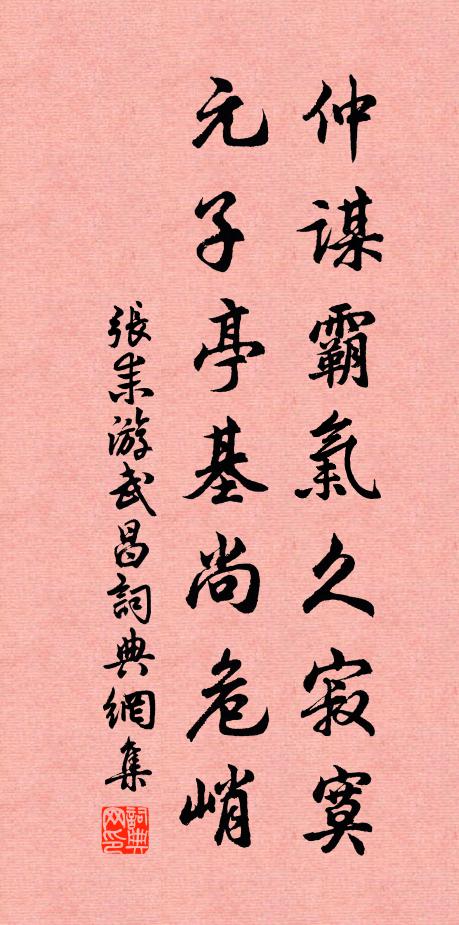 仲謀霸氣久寂寞
元子亭基尚危峭
張耒游武昌詞典網集
詞典网印